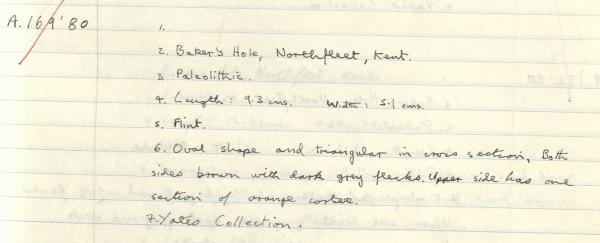 A.169'80
1.
2. Baker's Hole, Northfleet, Kent.
3. Paleolithic.
4. Length: 9.3 cms. Width: 5.1 cms.
5. Flint.
6. Oval shape and triangular in cross section, Both
sides brown with dark grey flecks. Upper side has one
section of orange cortex.
7. Yates Collection.